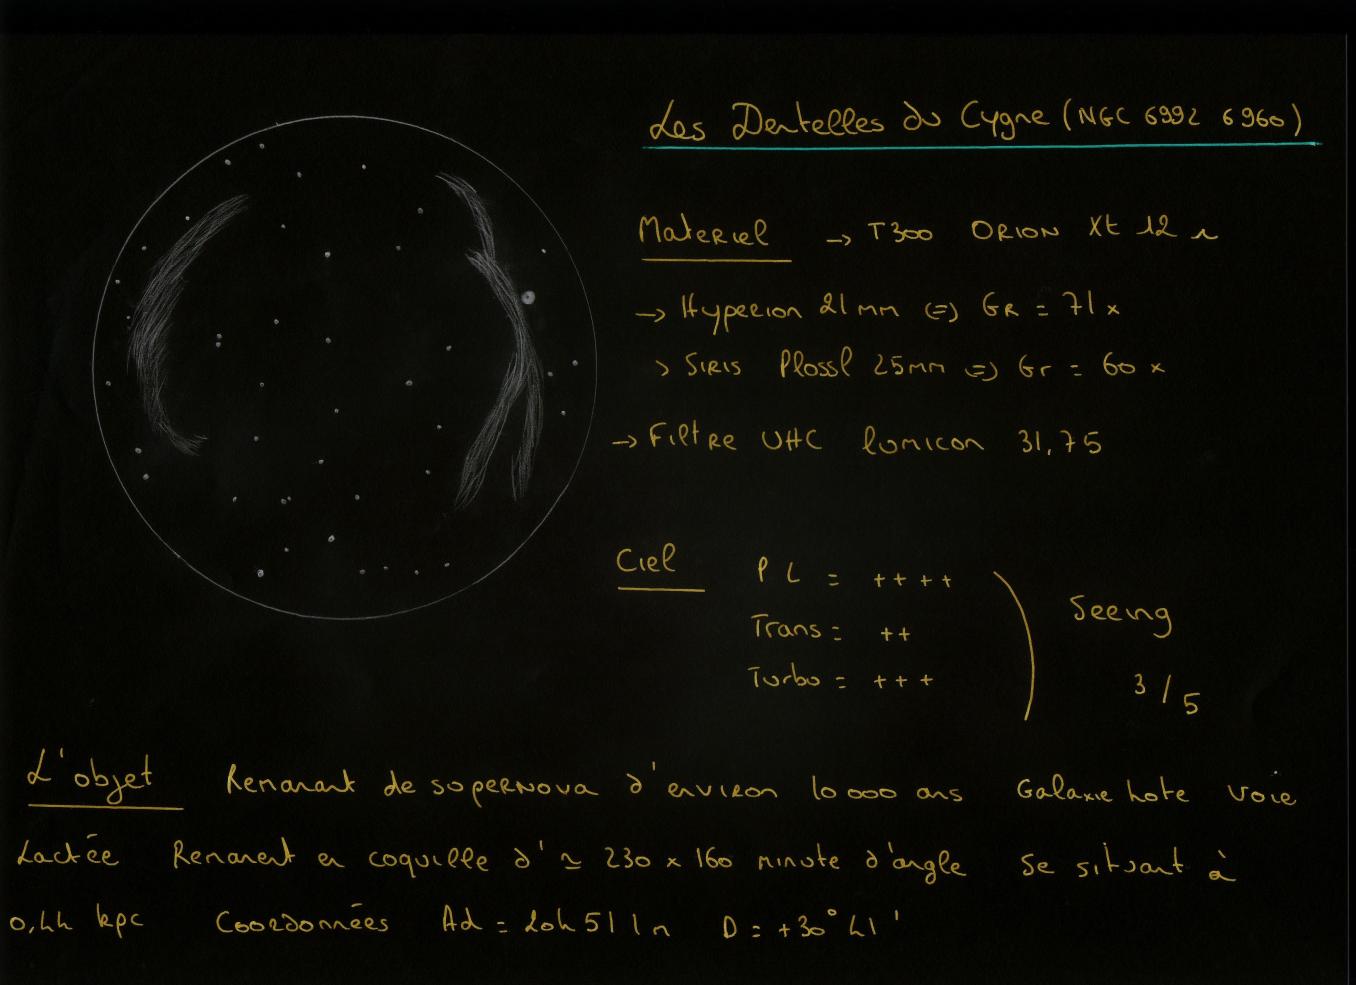 Les Dentelles du Cygne (NGC 6992 6960)
Materiel → T300 ORION Xt 12 i
→ Hyperion 21 mm (=) GR = 71 x
> SIRIS Plossl 25mm => Gr = 60 x
→ Filtre UHC lumicon 31,75
Ciel
P L = ++++
Trans = ++
Turbo = +++
Seeing
3/5
L'objet Remanant de supernova d'environ 10 000 ans Galaxie hote voie
Lactée Remanent en coquille d' ≃ 230 x 160 minute d'angle se situant à
0,44 kpc Coordonnées Ad = 20h 51 m D = +30° 41'